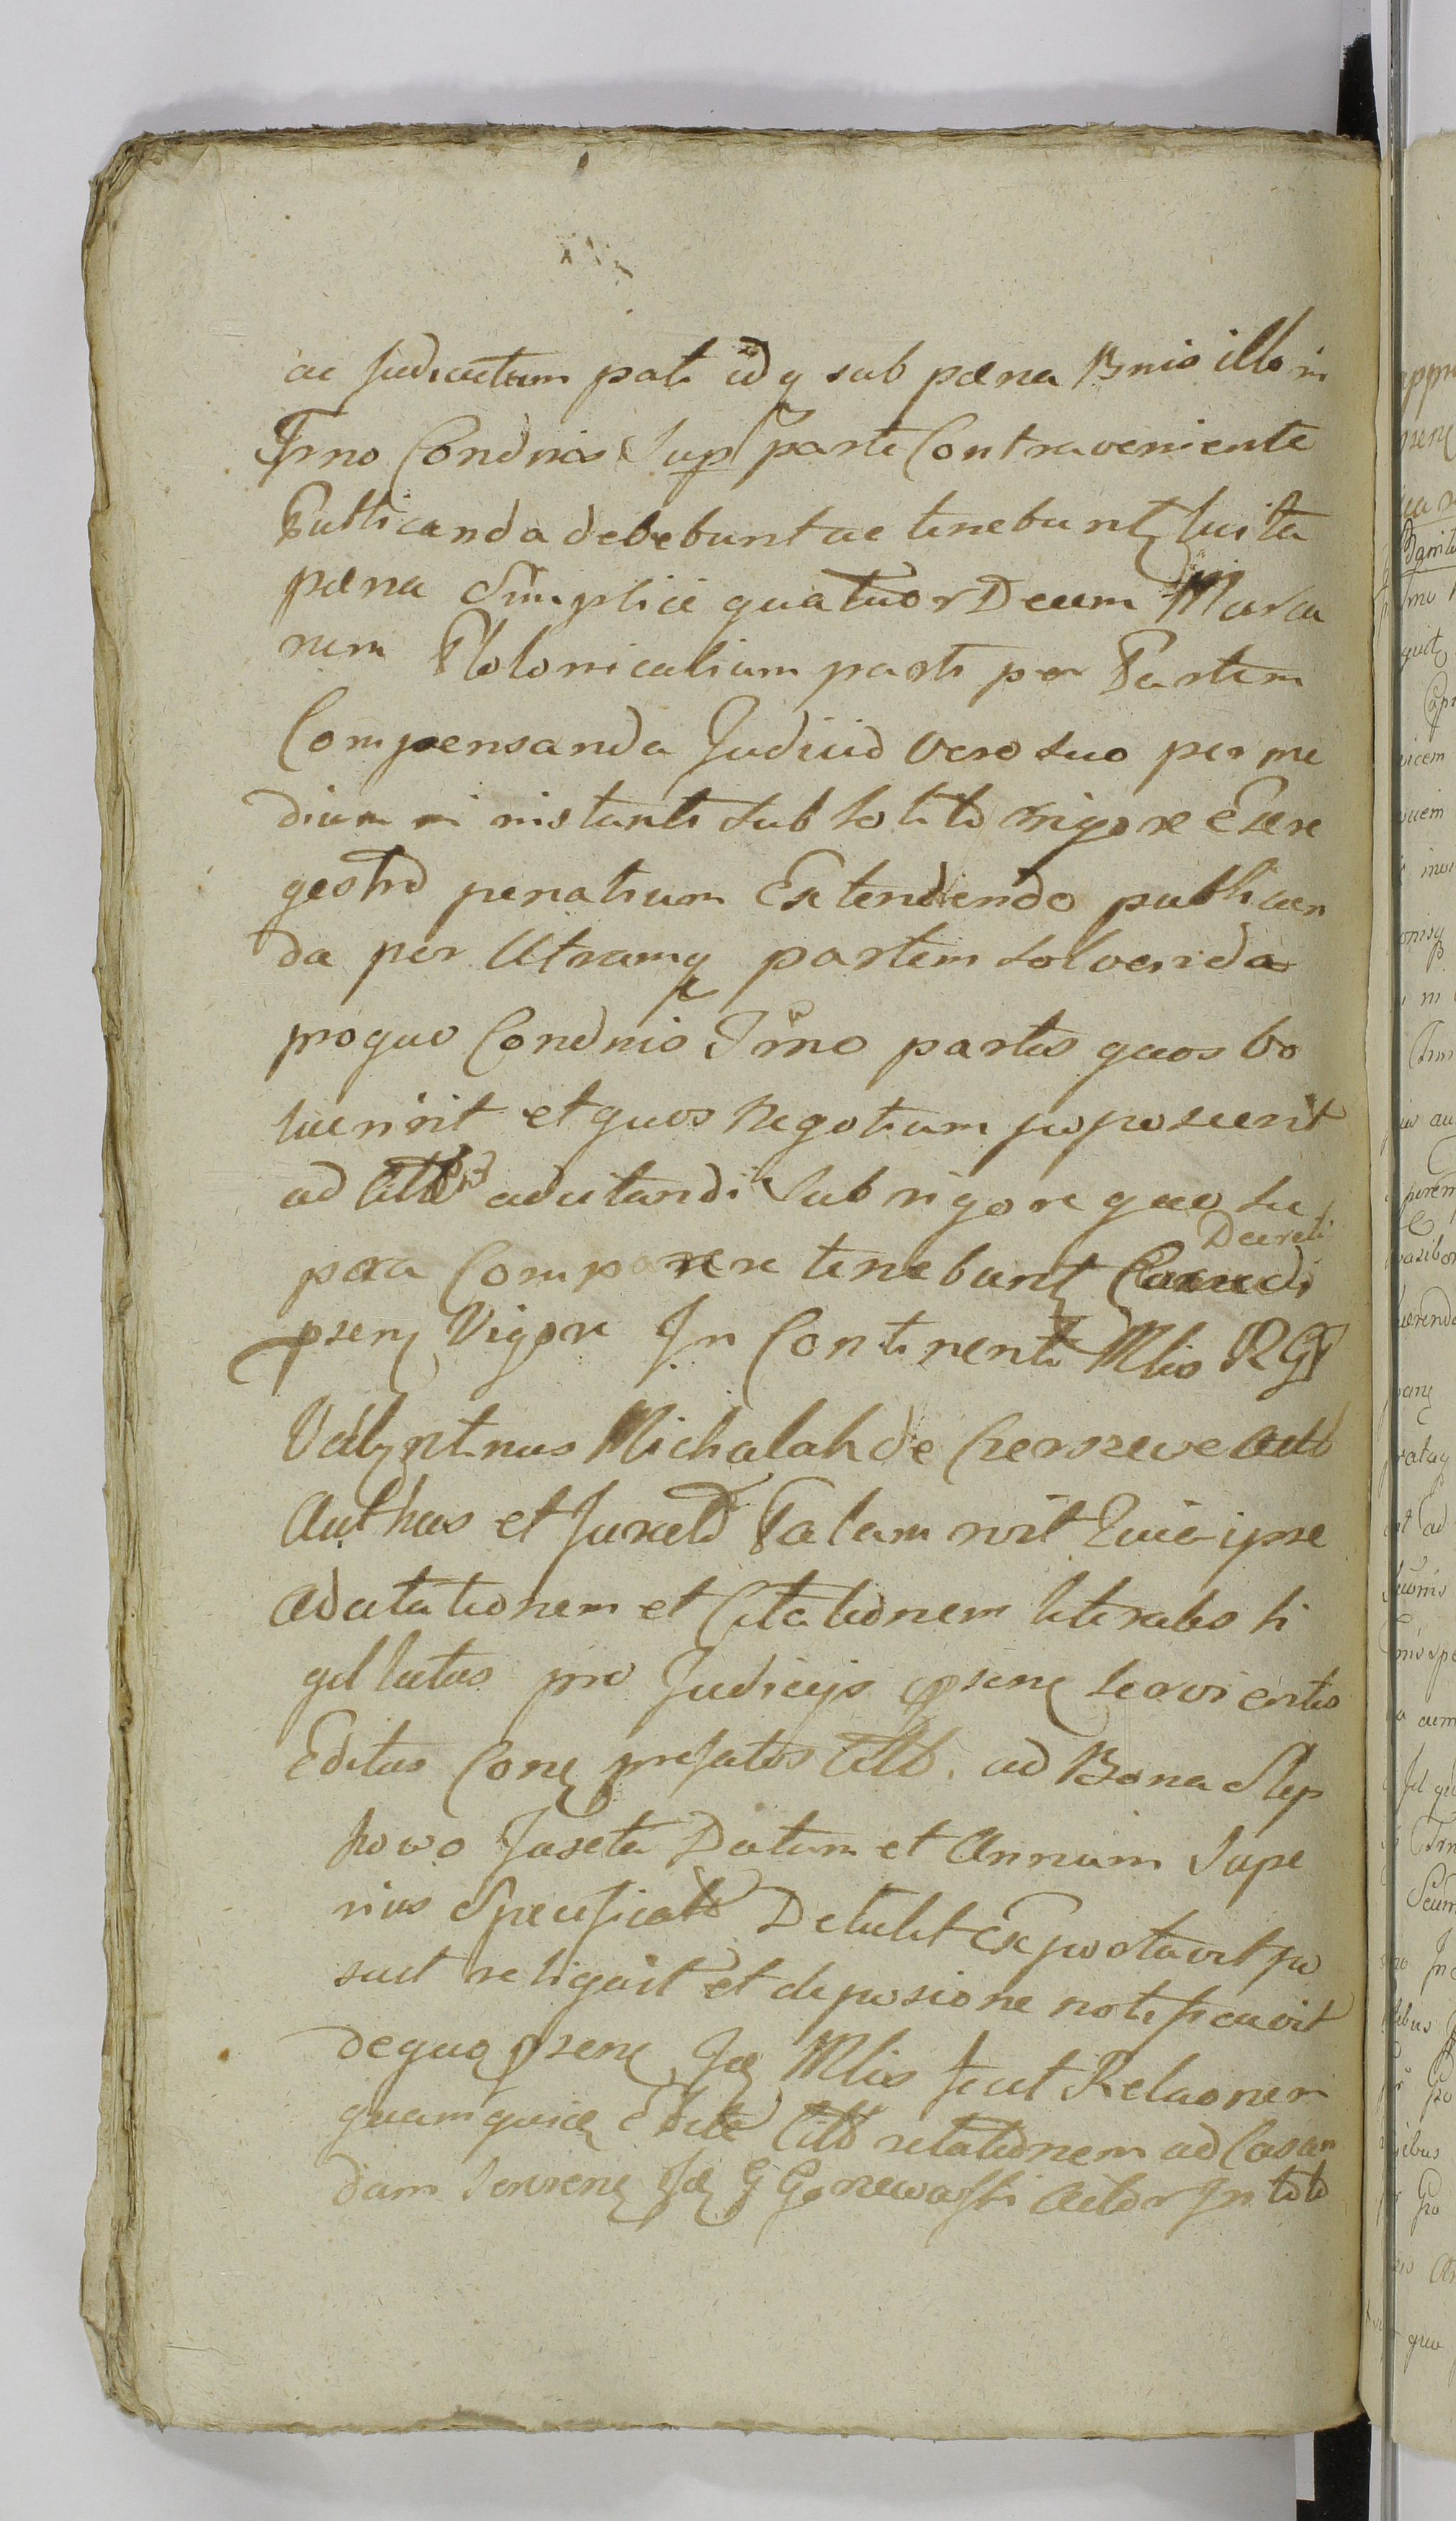 ac Judicatum pati idq sub pœna Bnis illo in
Trno Condnis Sup parte Contraveniente
Publicanda debebunt ac tenebunt luita
pœna Simplici quatuor Decem Marca
rum Polonicalium parti per Partem
Compensanda Judicio vero suo per me
dium instanti sub solito rigore Ex re
gestro penalium Extendendo publican
da per Utramq partem solvenda
proquo Condnis Trno partes quos vo
luerint et quos Negotium poposcerit
ad adcitandi Sub rigore quo su
pra Comparere tenebunt
Decreti
psenţ Vigore In Continenti Mlis RG
Valyntinus Michalak de Czerszewe
Authus et Jurato Palam rcit Quia ipse
Adcitationem et Citationem literales si
gillatas pro Judicijs psenţ servientes
Editas Conţ prefatos Citt. ad Bona Slep
kowo Juxta Datum et Annum Supe
rius Specificato Detulit Exportavit po
suit reliquit et deposicione notificavit
dequo psenţ Mlis fecit Relaonem
quamquidem Citt relationem ad Casan
dam Actor In toto